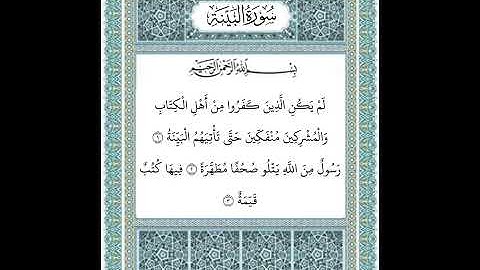 سُورَةُ البَيِّنَةِ
بِسْمِ اللَّهِ الرَّحْمَٰنِ الرَّحِيمِ
لَمْ يَكُنِ الَّذِينَ كَفَرُوا مِنْ أَهْلِ الْكِتَابِ
وَالْمُشْرِكِينَ مُنْفَكِّينَ حَتَّى تَأْتِيَهُمُ الْبَيِّنَةُ ١
رَسُولٌ مِنَ اللَّهِ يَتْلُو صُحُفًا مُطَهَّرَةً ٢ فِيهَا كُتُبٌ
قَيِّمَةٌ ٣